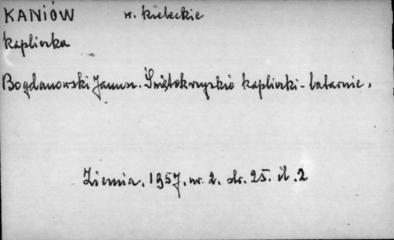 KANIÓW w. kieleckie
kapliczka
Bogdanowski Janusz. Świętokrzyskie kapliczki-latarnie.
Ziemia. 1957, nr. 2. str. 25. il. 2